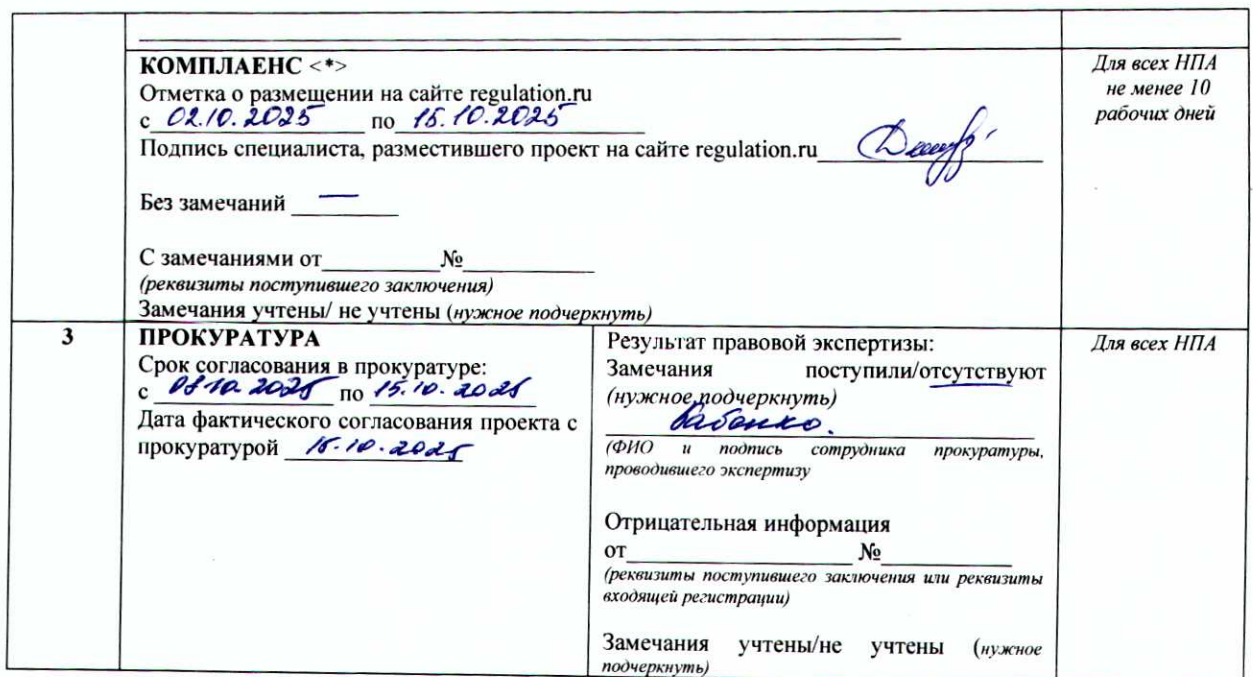 КОМПЛАЕНС <*>
Отметка о размещении на сайте regulation.ru
с 02.10.2025 по 15.10.2025
Подпись специалиста, разместившего проект на сайте regulation.ru
Без замечаний —
С замечаниями от №
(реквизиты поступившего заключения)
Замечания учтены/ не учтены (нужное подчеркнуть)
Для всех НПА
не менее 10
рабочих дней
3
ПРОКУРАТУРА
Срок согласования в прокуратуре:
с 10 2025 по 15.10.2025
Дата фактического согласования проекта с
прокуратурой 15.10.2025
Результат правовой экспертизы:
Замечания поступили/отсутствуют
(нужное подчеркнуть)
(ФИО и подпись сотрудника прокуратуры,
проводившего экспертизу
Отрицательная информация
от №
(реквизиты поступившего заключения или реквизиты
входящей регистрации)
Замечания учтены/не учтены (нужное
подчеркнуть)
Для всех НПА